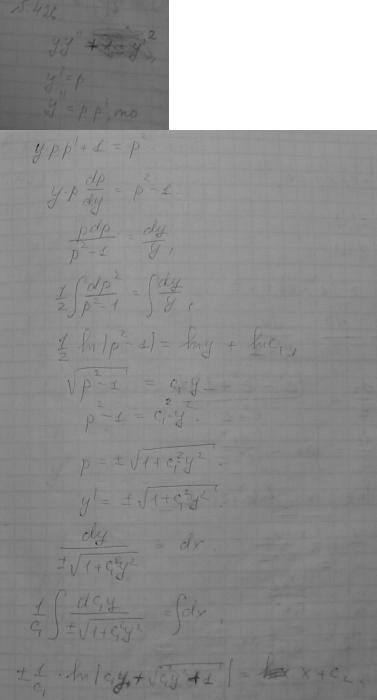 5.426
yy'' + 1 = y'^2
y' = p
y'' = p p', то
y p p' + 1 = p^2
y·p dp/dy = p^2 - 1.
pdp/(p^2-1) = dy/y,
1/2 ∫ dp^2/(p^2-1) = ∫ dy/y,
1/2 ln|p^2-1| = ln y + ln c_1,
√(p^2-1) = c_1·y
p^2 - 1 = c_1^2·y^2.
p = ±√(1+c_1^2y^2).
y' = ±√(1+c_1^2y^2).
dy/(±√(1+c_1^2y^2)) = dx.
1/c_1 ∫ dc_1y/(±√(1+c_1^2y^2)) = ∫dx,
± 1/c_1 · ln|c_1y + √(c_1^2y^2+1)| = x + c_2.